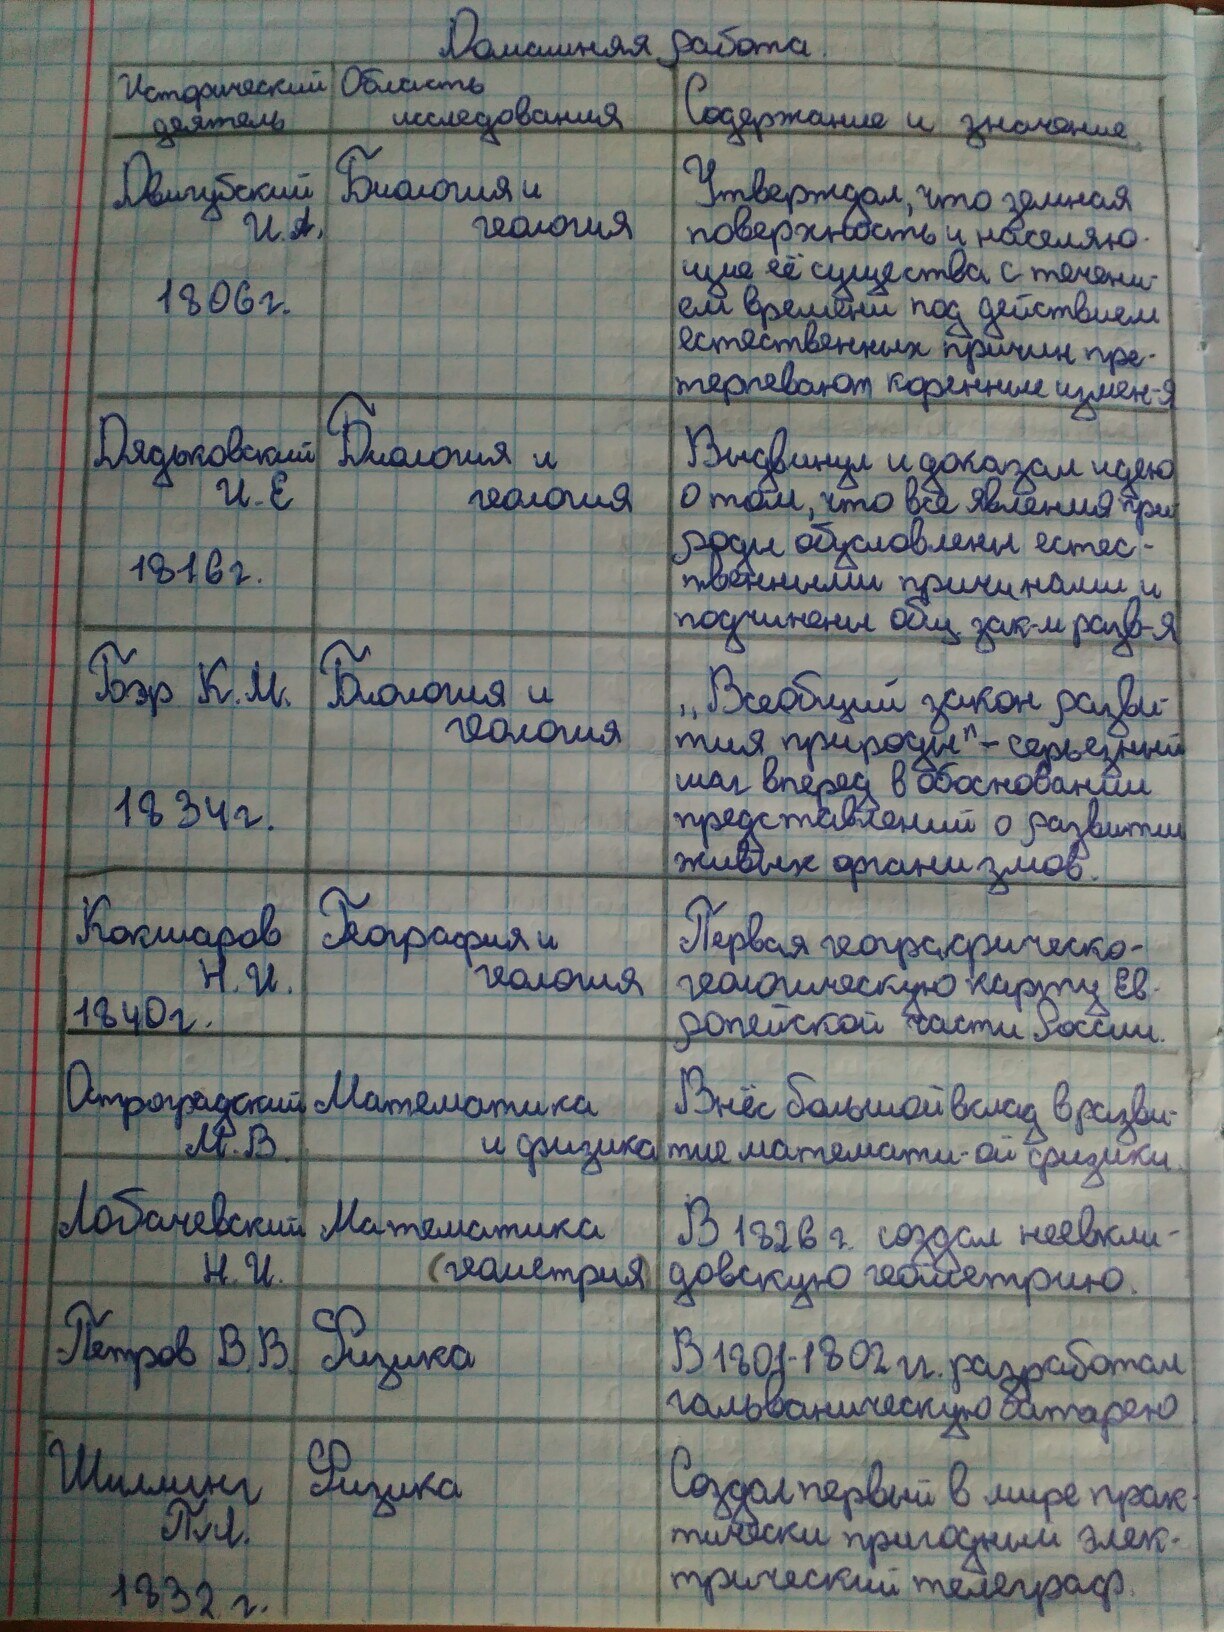 Домашняя работа.
Исторический деятель
Область исследования
Содержание и значение
Двигубский
И.А.
1806г.
Биология и
геология
Утверждал, что земная
поверхность и населяю-
щие её существа с течени-
ем времени под действием
естественных причин пре-
терпевают коренные измен-я
Дядьковский
И.Е
1816г.
Биология и
геология
Выдвинул и доказал идею
о том, что все явления при
роды обусловлены естес-
твенными причинами и
подчинены общ. зак-м разв-я
Бэр К.М.
1834г.
Биология и
геология
„Всеобщий закон разви-
тия природы" - серьезный
шаг вперед в обосновании
представлений о развитии
живых организмов.
Кокшаров
Н.И.
1840г.
География и
геология
Первая географическо-
геологическую карту Ев-
ропейской части России.
Остроградский
М.В.
Математика
и физика
Внёс большой вклад в разви-
тие математи-ой физики.
Лобачевский
Н.И.
Математика
(геометрия)
В 1826 г. создал неевкли-
довскую геометрию.
Петров В.В.
Физика
В 1801-1802 гг. разработал
гальваническую батарею
Шиллинг
П.Л.
1832 г.
Физика
Создал первый в мире прак-
тически пригодный элек-
трический телеграф.